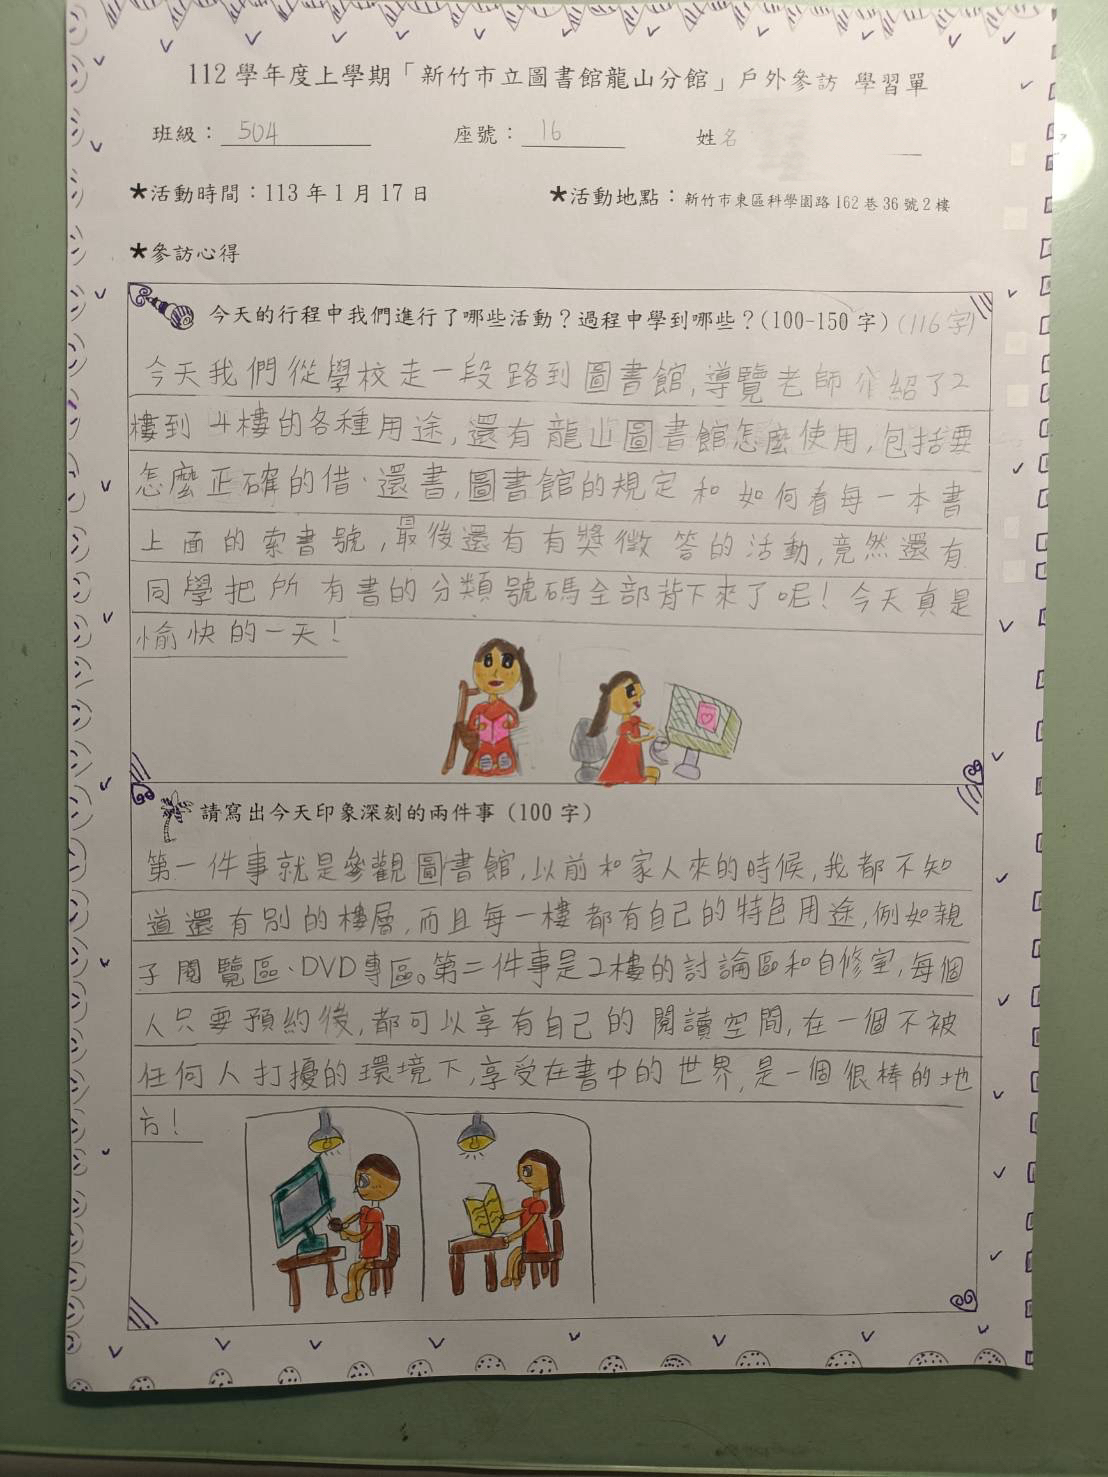 112 學年度上學期「新竹市立圖書館龍山分館」戶外參訪 學習單
班級：504 座號：16 姓名
★活動時間：113 年 1 月 17 日 ★活動地點：新竹市東區科學園路 162 巷 36 號 2 樓
★參訪心得
今天的行程中我們進行了哪些活動？過程中學到哪些？(100-150 字) (116字)
今天我們從學校走一段路到圖書館,導覽老師介紹了2
樓到4樓的各種用途,還有龍山圖書館怎麼使用,包括要
怎麼正確的借、還書,圖書館的規定和如何看每一本書
上面的索書號,最後還有有獎徵答的活動,竟然還有
同學把所有書的分類號碼全部背下來了呢!今天真是
愉快的一天!
請寫出今天印象深刻的兩件事 (100 字)
第一件事就是參觀圖書館,以前和家人來的時候,我都不知
道還有別的樓層,而且每一樓都有自己的特色用途,例如親
子閱覽區、DVD專區。第二件事是2樓的討論區和自修室,每個
人只要預約後,都可以享有自己的閱讀空間,在一個不被
任何人打擾的環境下,享受在書中的世界,是一個很棒的地
方!